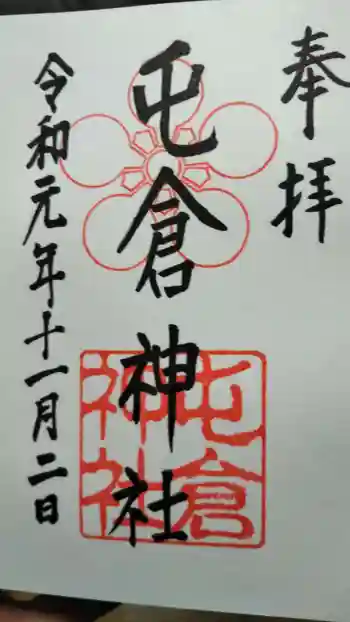 奉拝
屯倉神社
屯倉神社
令和元年十一月二日